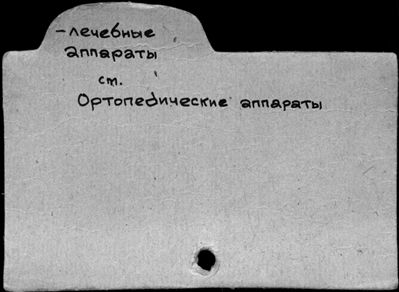 -лечебные
аппараты
ст.
Ортопедические аппараты